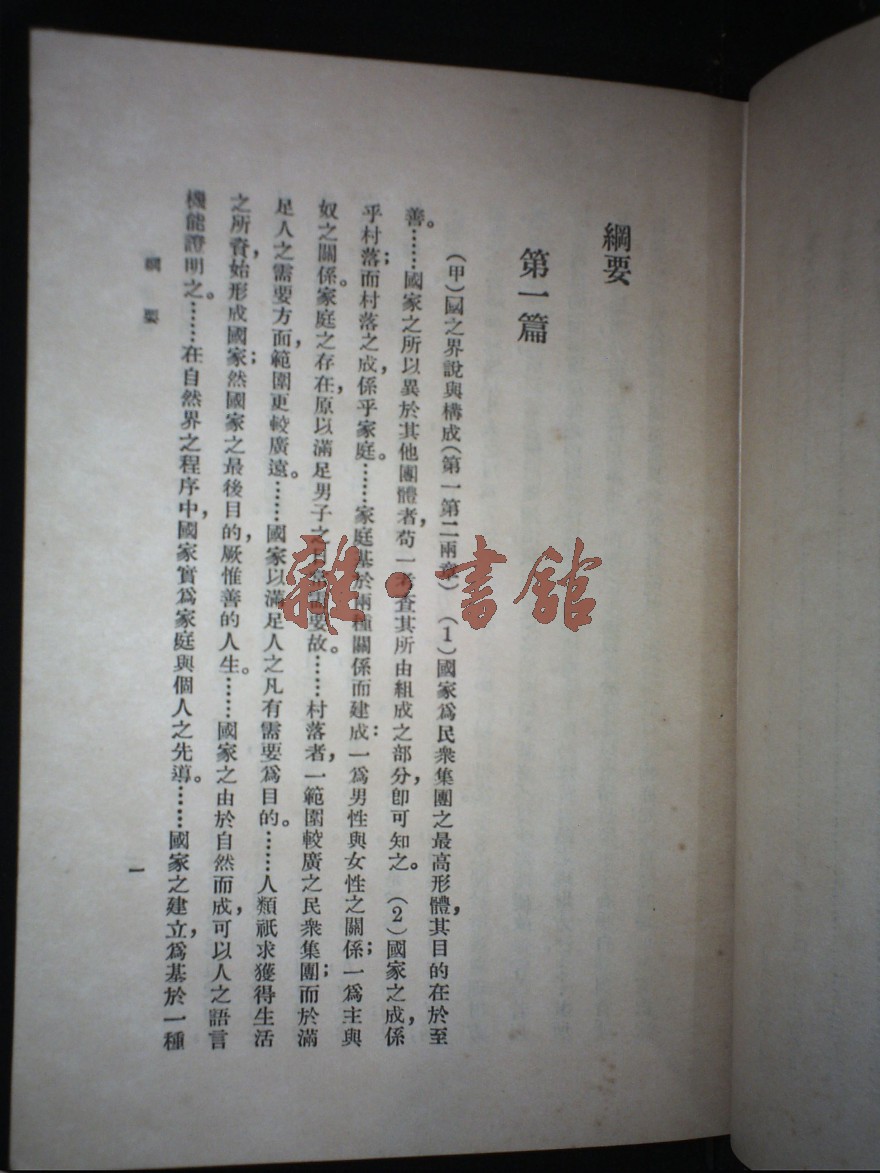 綱要
第一篇
（甲）國之界說與構成（第一第二兩章）（1）國家爲民衆集團之最高形體，其目的在於至
善。……國家之所以異於其他團體者，苟一考查其所由組成之部分，卽可知之。（2）國家之成，係
乎村落；而村落之成，係乎家庭。……家庭基於兩種關係而建成：一爲男性與女性之關係；一爲主與
奴之關係。家庭之存在，原以滿足男子之日常需要故。……村落者，一範圍較廣之民衆集團；而於滿
足人之需要方面，範圍更較廣遠。……國家以滿足人之凡有需要爲目的。……人類祇求獲得生活
之所資，始形成國家；然國家之最後目的，厥惟善的人生。……國家之由於自然而成，可以人之語言
機能證明之。……在自然界之程序中，國家實爲家庭與個人之先導。……國家之建立，爲基於一種
綱要
一
雜·書館